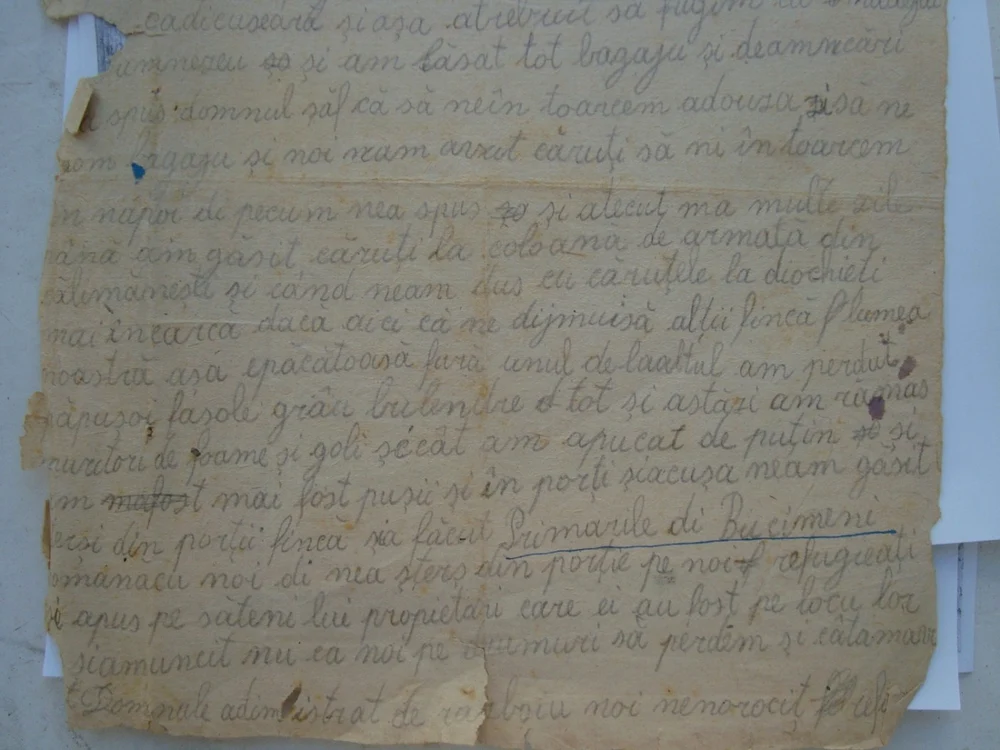 cadicuseară și așa atrebuit să fugim
și am lăsat tot bagaju și deamncări
spus domnul săf că să neîn toarcem adouza zi să ne
bagaju și noi neam avut căruți să ni în toarcem
n napoi di pecum nea spus și atecut ma multe zile
până am găsit căruți la coloană de armata din
călimănești și când neam dus cu căruțele la diochieti
mai încarcă dacă aici că ne dijmuisă alții fincă lumea
noastră așă epacătoasă fură unul de laaltul am perdut
păpușoi fasole grâu tot și astăzi am rămas
muritori de foame și goli șécât am apucat de puțin și
m mafost mai fost pusii și în porți siacușa neam găsit
din porții fincă sia făcut Primarile di Bucimeni
omanacu noi di nea șters din porție pe noi refugieați
apus pe săteni lui propietari care ei au fost pe locu lor
siamuncit nu ca noi pe drumuri să perdem și câtamavr
Domnule adimistrat de razboiu noi nenorocit